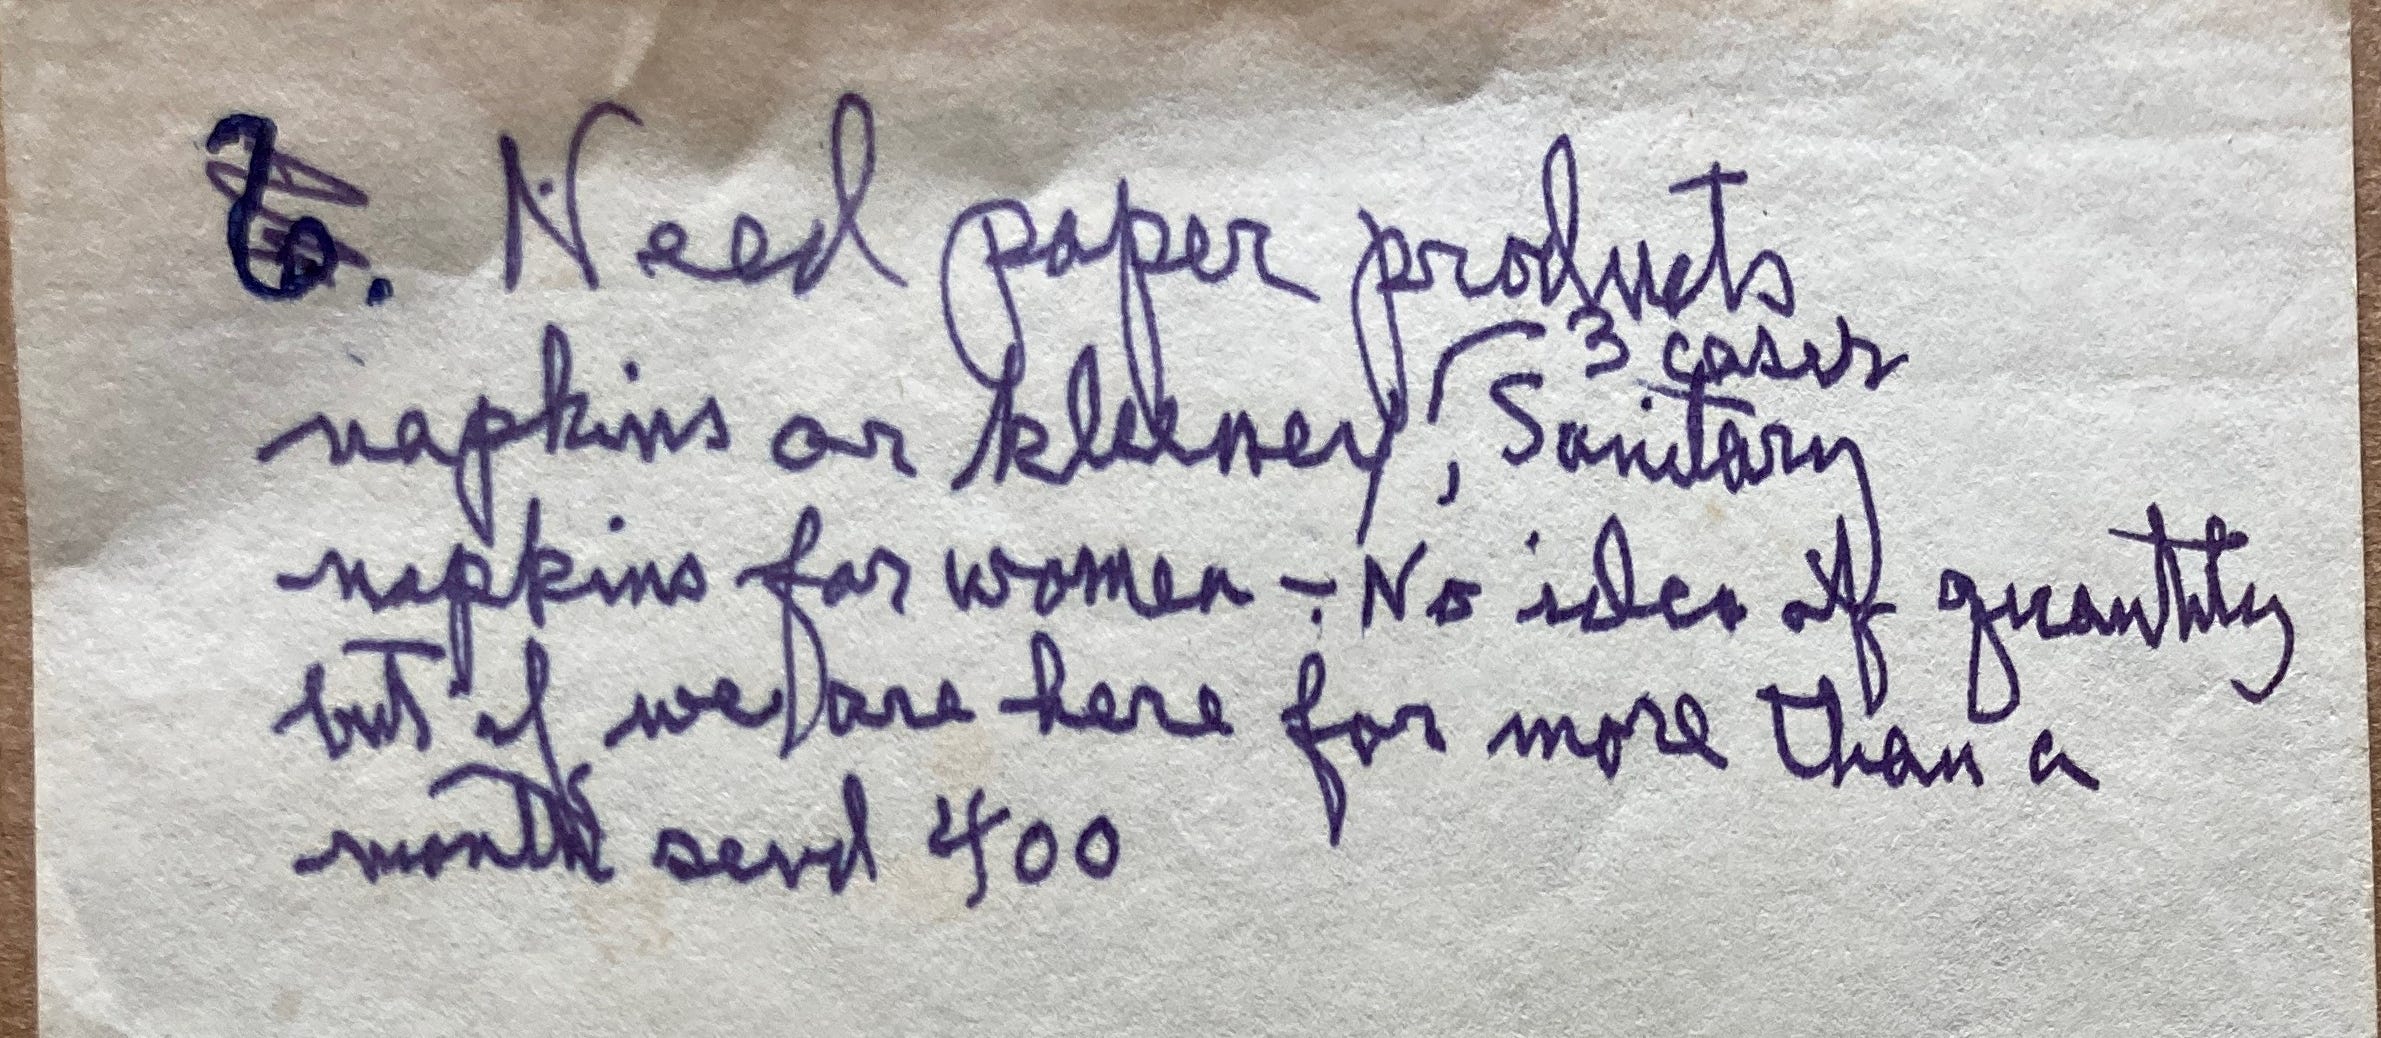 6. Need paper products
3 cases
napkins or kleenex, Sanitary
napkins for women - No idea of quantity
but if we are here for more than a
month send 400